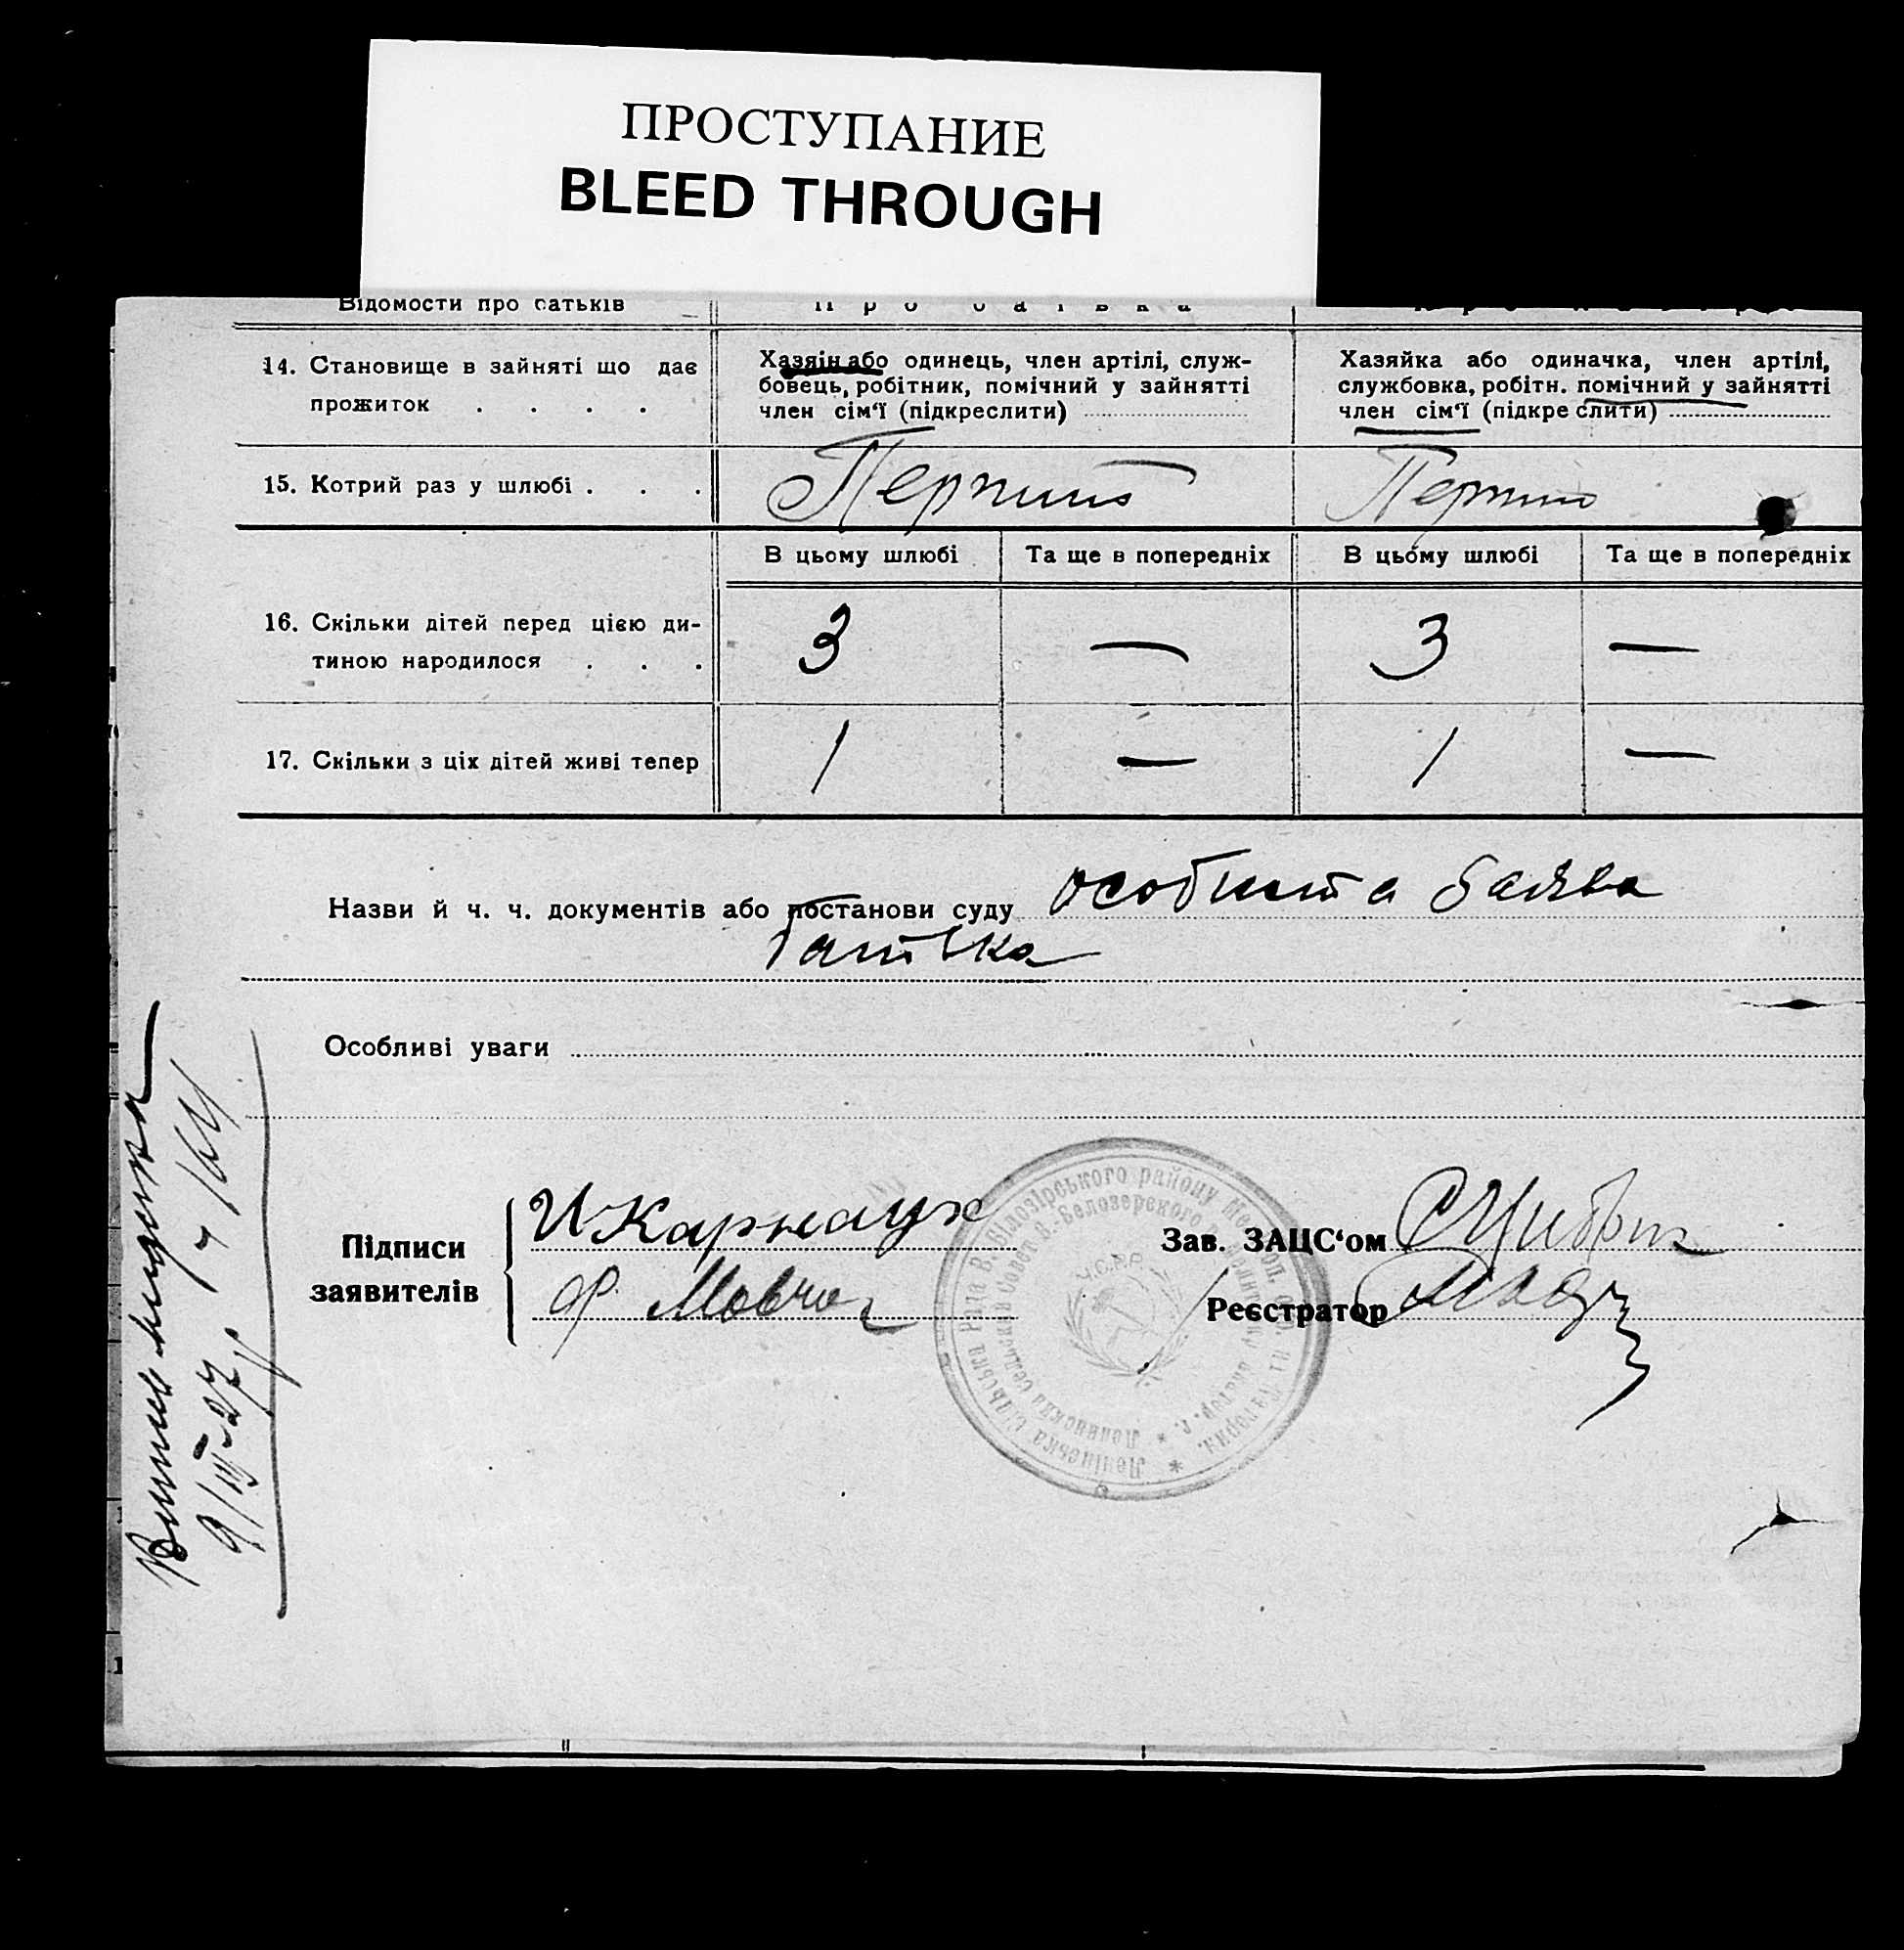 ПРОСТУПАНИЕ
BLEED THROUGH
Відомости про батьків
Про батька
14. Становище в зайняті що дає
прожиток . . . .
Хазяін або одинець, член артілі, служ-
бовець, робітник, помічний у зайнятті
член сім'ї (підкреслити)
Хазяйка або одиначка, член артілі,
службовка, робітн. помічний у зайнятті
член сім'ї (підкреслити)
15. Котрий раз у шлюбі . . .
Перший
Перший
В цьому шлюбі
Та ще в попередніх
В цьому шлюбі
Та ще в попередніх
16. Скільки дітей перед цією ди-
тиною народилося . . .
3 — 3 —
17. Скільки з ціх дітей живі тепер
1 — 1 —
Назви й ч. ч. документів або постанови суду особиста заява
батька
Особливі уваги
Підписи
заявителів
И Карнаух
Ф. Мовча
Зав. ЗАЦС'ом
Реєстратор
Ленінська Сільська Рада В.-Білозірського району
У.С.Р.Р.
9/III-27